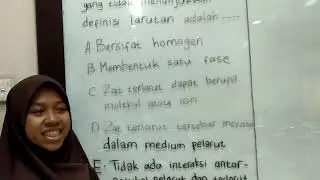 yang tidak menunjukkan
definisi larutan adalah ....
A. Bersifat homogen
B. Membentuk satu fase
C. Zat terlarut dapat berupa
molekul atau ion
D. Zat terlarut tersebar merata
dalam medium pelarut
E. Tidak ada interaksi antar-
pelarut dan terlarut